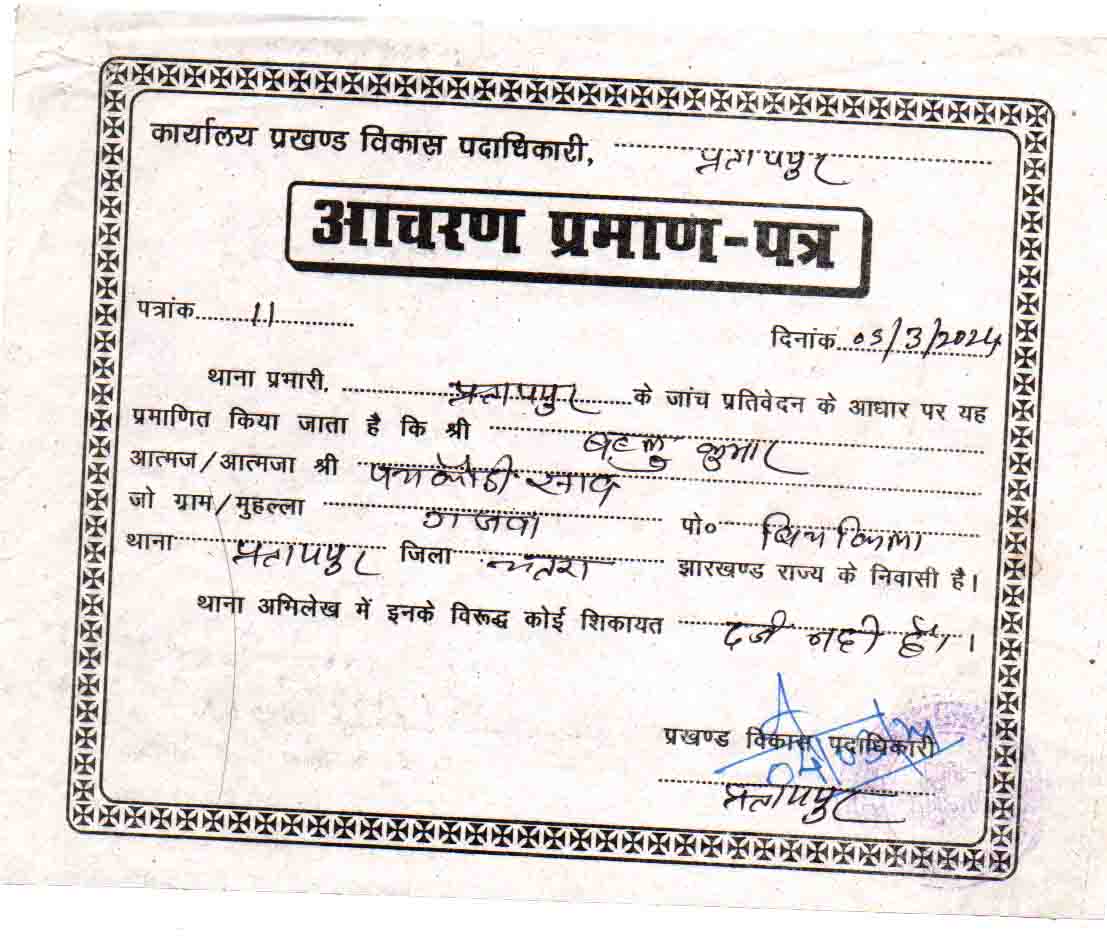 कार्यालय प्रखण्ड विकास पदाधिकारी, प्रतापपुर
आचरण प्रमाण-पत्र
पत्रांक 11
दिनांक 05/3/2024
थाना प्रभारी, प्रतापपुर के जांच प्रतिवेदन के आधार पर यह
प्रमाणित किया जाता है कि श्री कुमार
आत्मज/आत्मजा श्री पचकौडी साव
जो ग्राम/मुहल्ला गजवा पो०
थाना प्रतापपुर जिला चतरा झारखण्ड राज्य के निवासी है।
थाना अभिलेख में इनके विरूद्ध कोई शिकायत दर्ज नही है।
प्रखण्ड विकास पदाधिकारी
प्रतापपुर